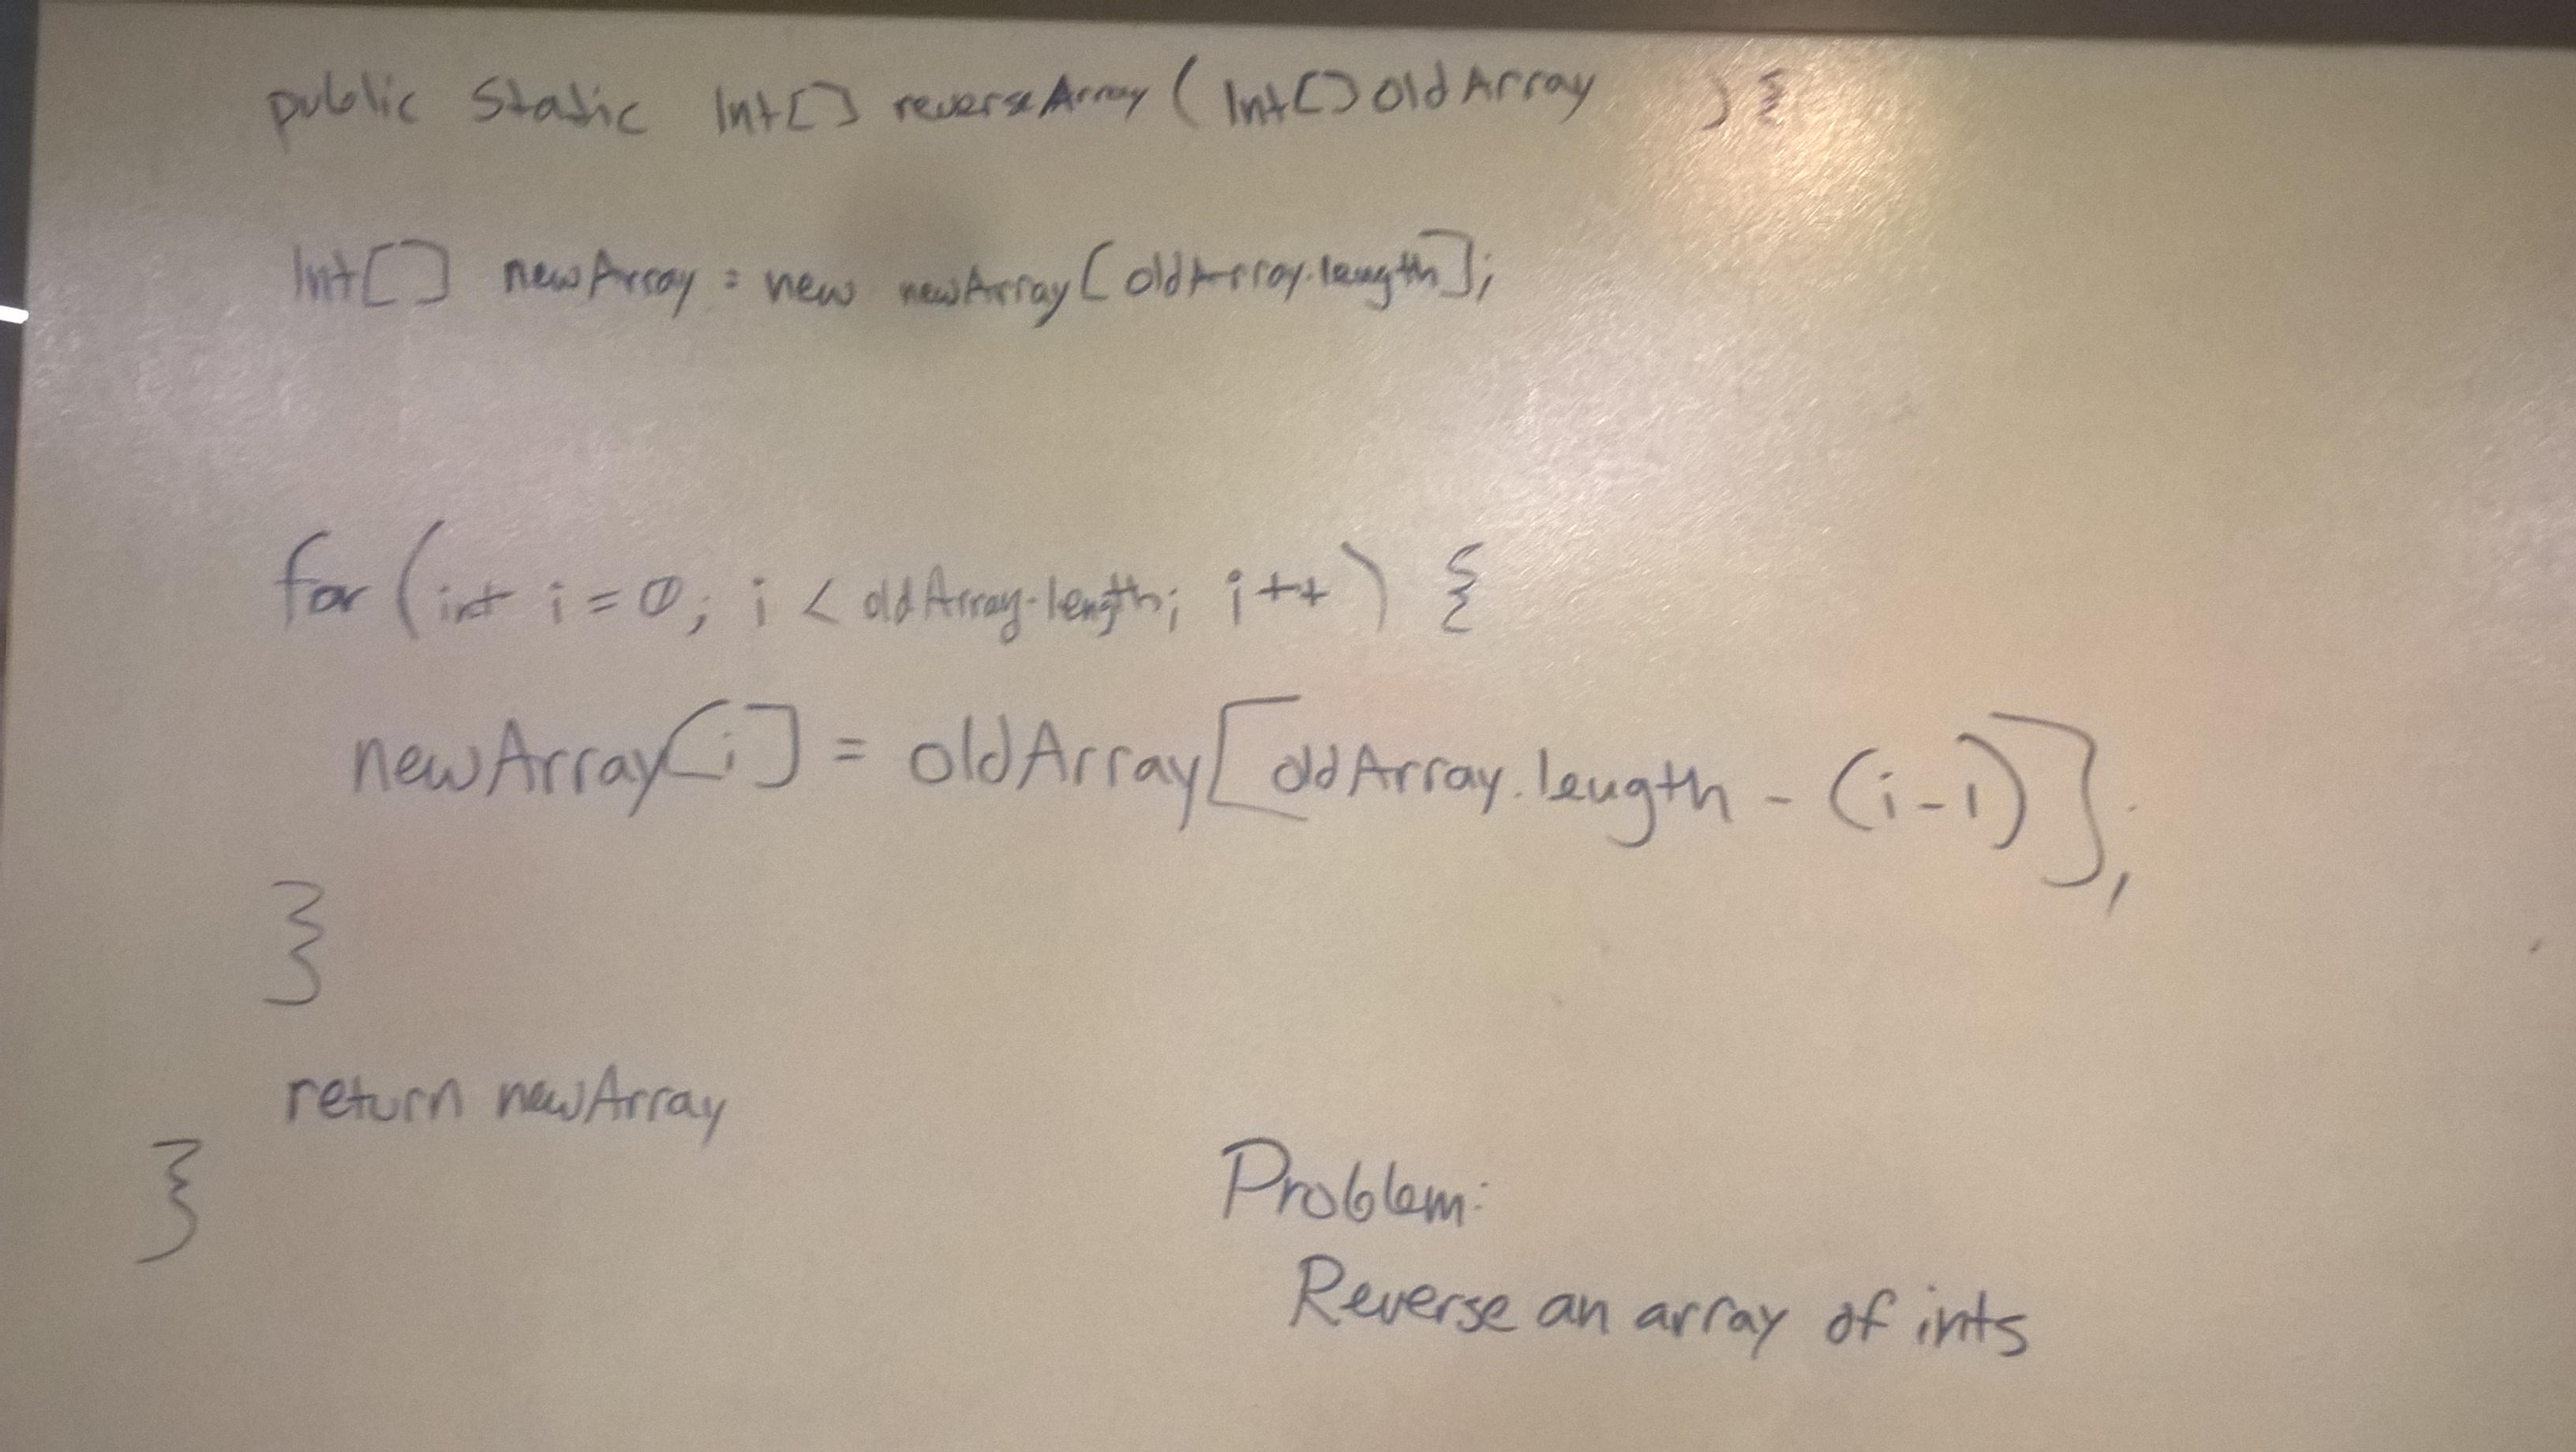 public static Int[] reverseArray (Int[] oldArray ) {
Int[] newArray = new newArray[oldArray.length];
for (int i = 0; i < oldArray.length; i++) {
newArray[i] = oldArray[oldArray.length - (i-1)];
}
return newArray
}
Problem:
Reverse an array of ints